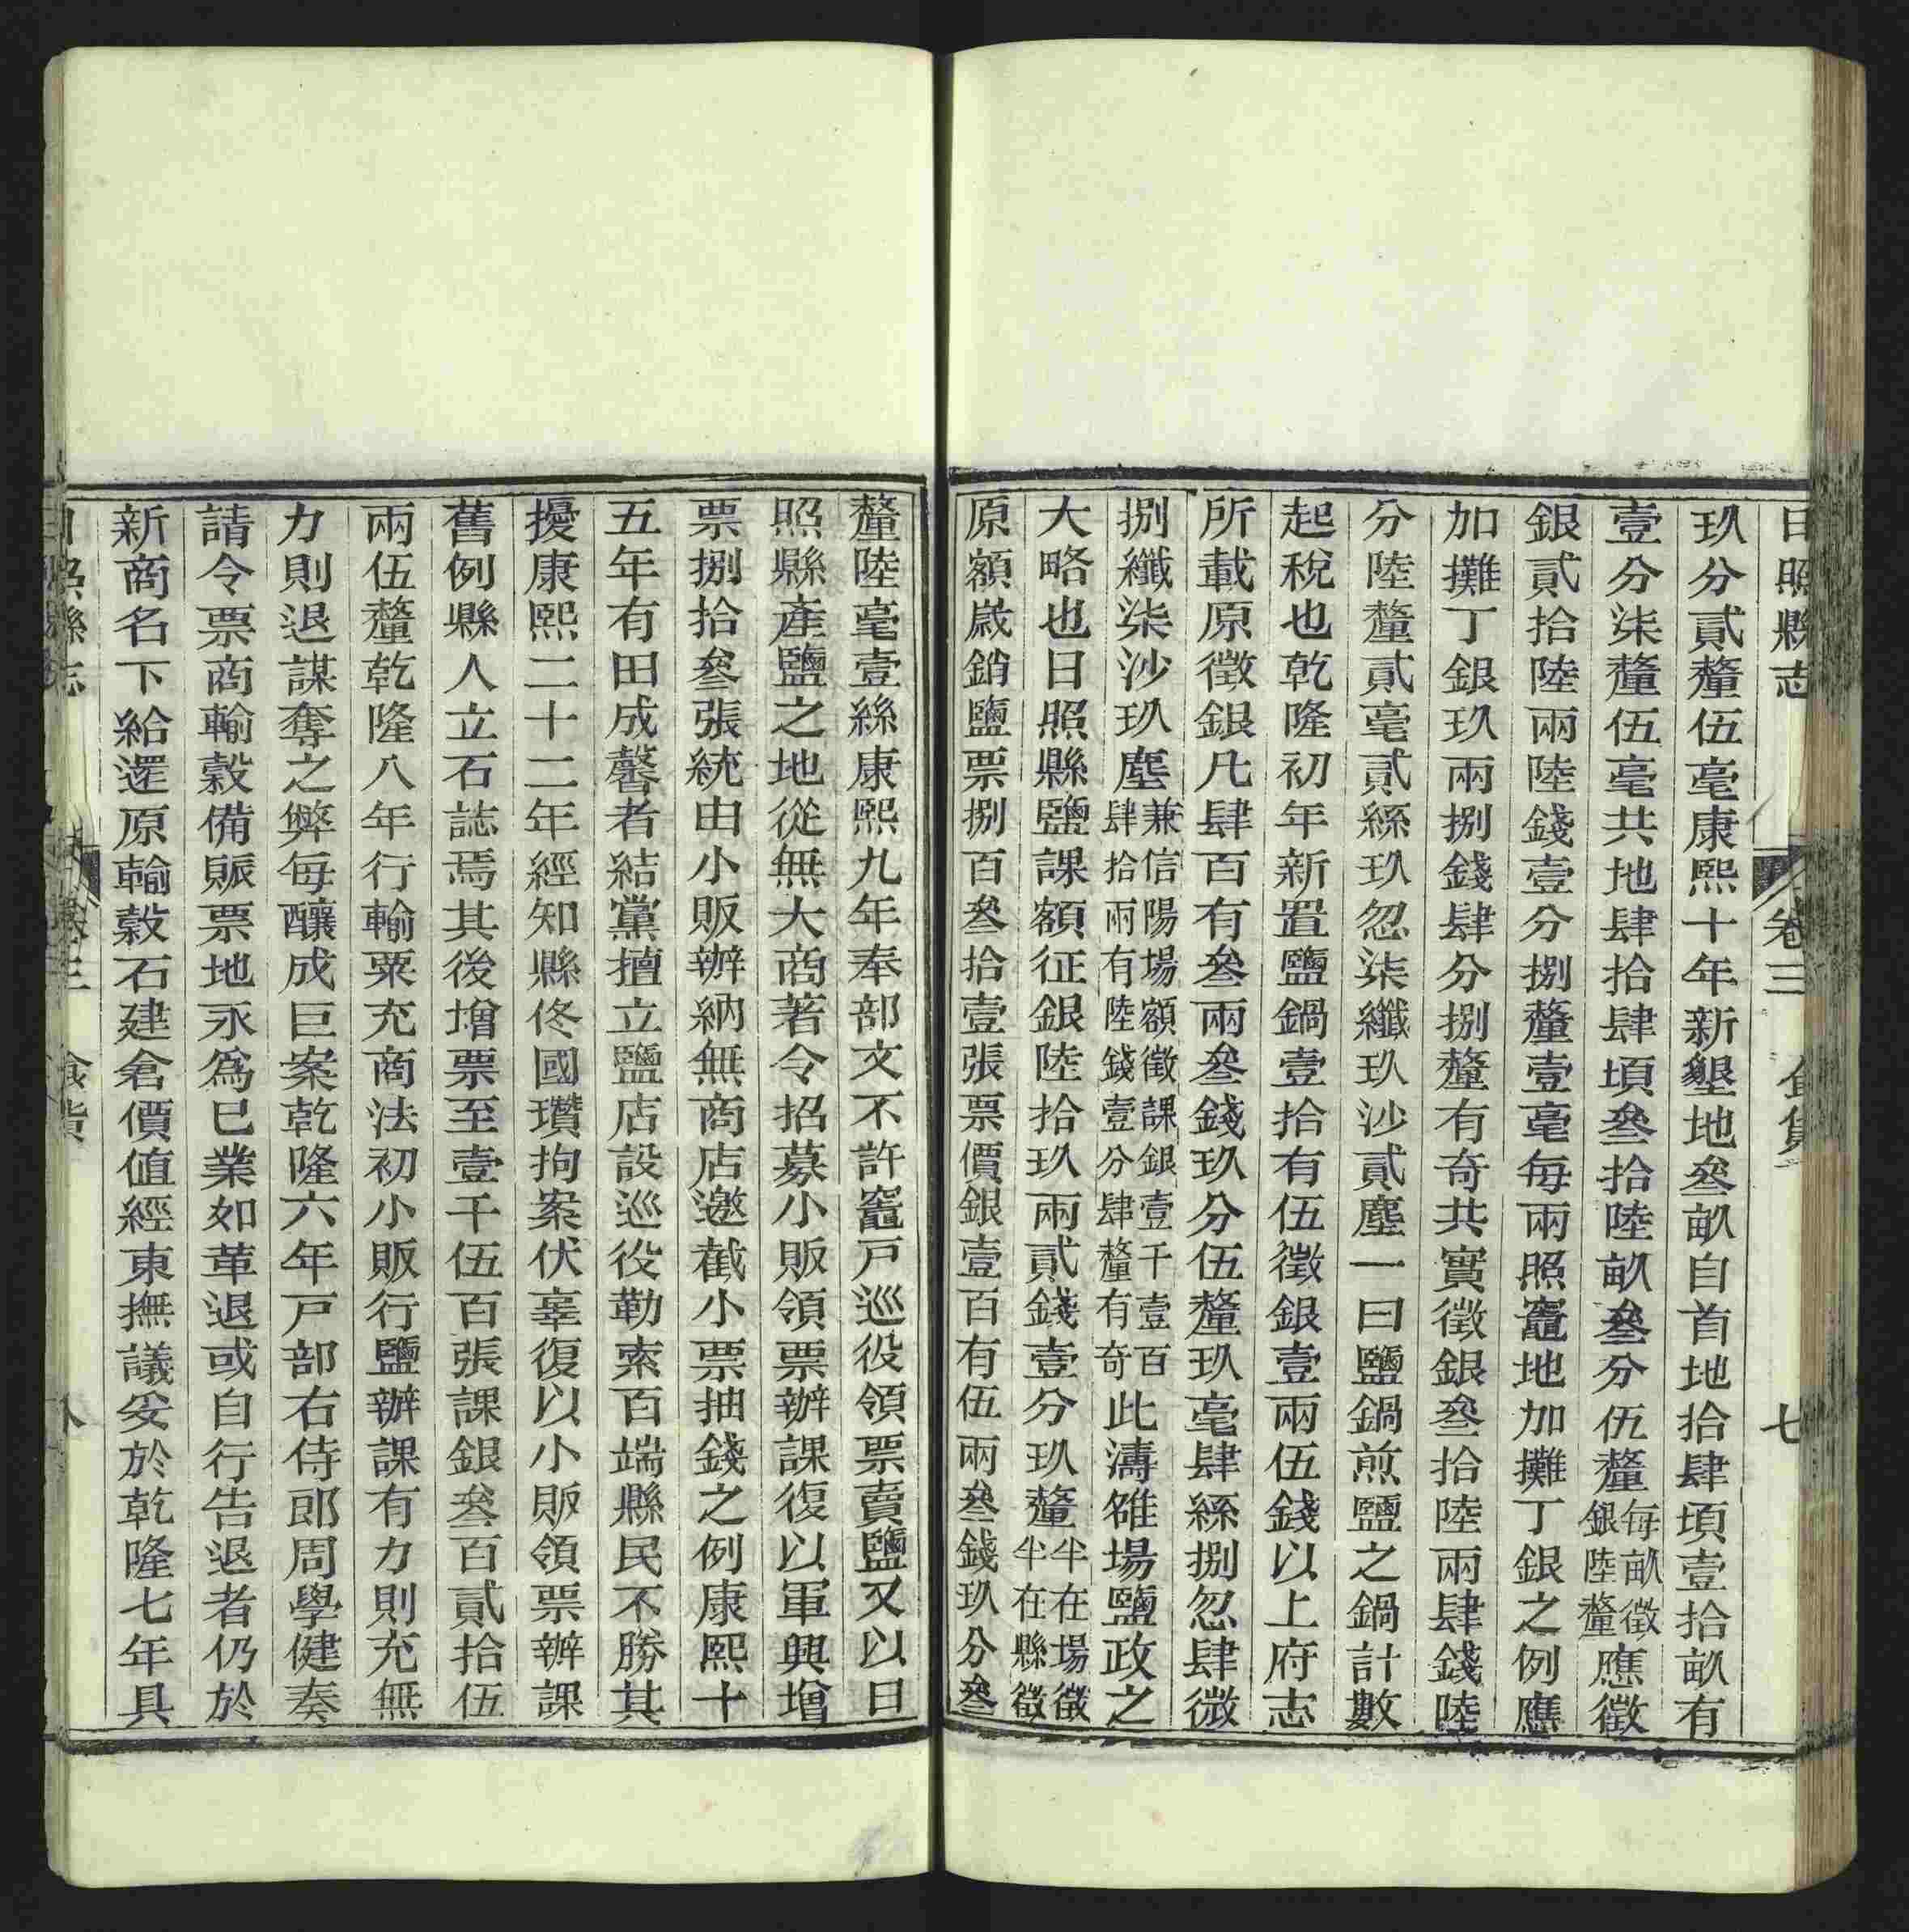 日照縣志 卷三 食貨 七
玖分貳釐伍毫康熙十年新墾地叁畝自首地拾肆頃壹拾畝有
壹分柒釐伍毫共地肆拾肆頃叁拾陸畝叁分伍釐每畝徵銀陸釐應徵
銀貳拾陸兩陸錢壹分捌釐壹毫每兩照竈地加攤丁銀之例應
加攤丁銀玖兩捌錢肆分捌釐有奇共實徵銀叁拾陸兩肆錢陸
分陸釐貳毫貳絲玖忽柒纖玖沙貳塵一曰鹽鍋煎鹽之鍋計數
起稅也乾隆初年新置鹽鍋壹拾有伍徵銀壹兩伍錢以上府志
所載原徵銀凡肆百有叁兩叁錢玖分伍釐玖毫肆絲捌忽肆微
捌纖柒沙玖塵兼信陽場額徵課銀壹千壹百肆拾兩有陸錢壹分肆釐有奇此濤雒場鹽政之
大略也日照縣鹽課額征銀陸拾玖兩貳錢壹分玖釐半在場徵半在縣徵
原額歲銷鹽票捌百叁拾壹張票價銀壹百有伍兩叁錢玖分叁
釐陸毫壹絲康熙九年奉部文不許竈戸巡役領票賣鹽又以日
照縣產鹽之地從無大商著令招募小販領票辦課復以軍興增
票捌拾叁張統由小販辦納無商店邀截小票抽錢之例康熙十
五年有田成馨者結黨擅立鹽店設巡役勒索百端縣民不勝其
擾康熙二十二年經知縣佟國瓚拘案伏辜復以小販領票辦課
舊例縣人立石誌焉其後增票至壹千伍百張課銀叁百貳拾伍
兩伍釐乾隆八年行輸粟充商法初小販行鹽辦課有力則充無
力則退謀奪之弊每釀成巨案乾隆六年戸部右侍郎周學健奏
請令票商輸穀備賑票地永爲已業如革退或自行告退者仍於
新商名下給還原輸穀石建倉價值經東撫議妥於乾隆七年具
日照縣志 卷三 食貨 八